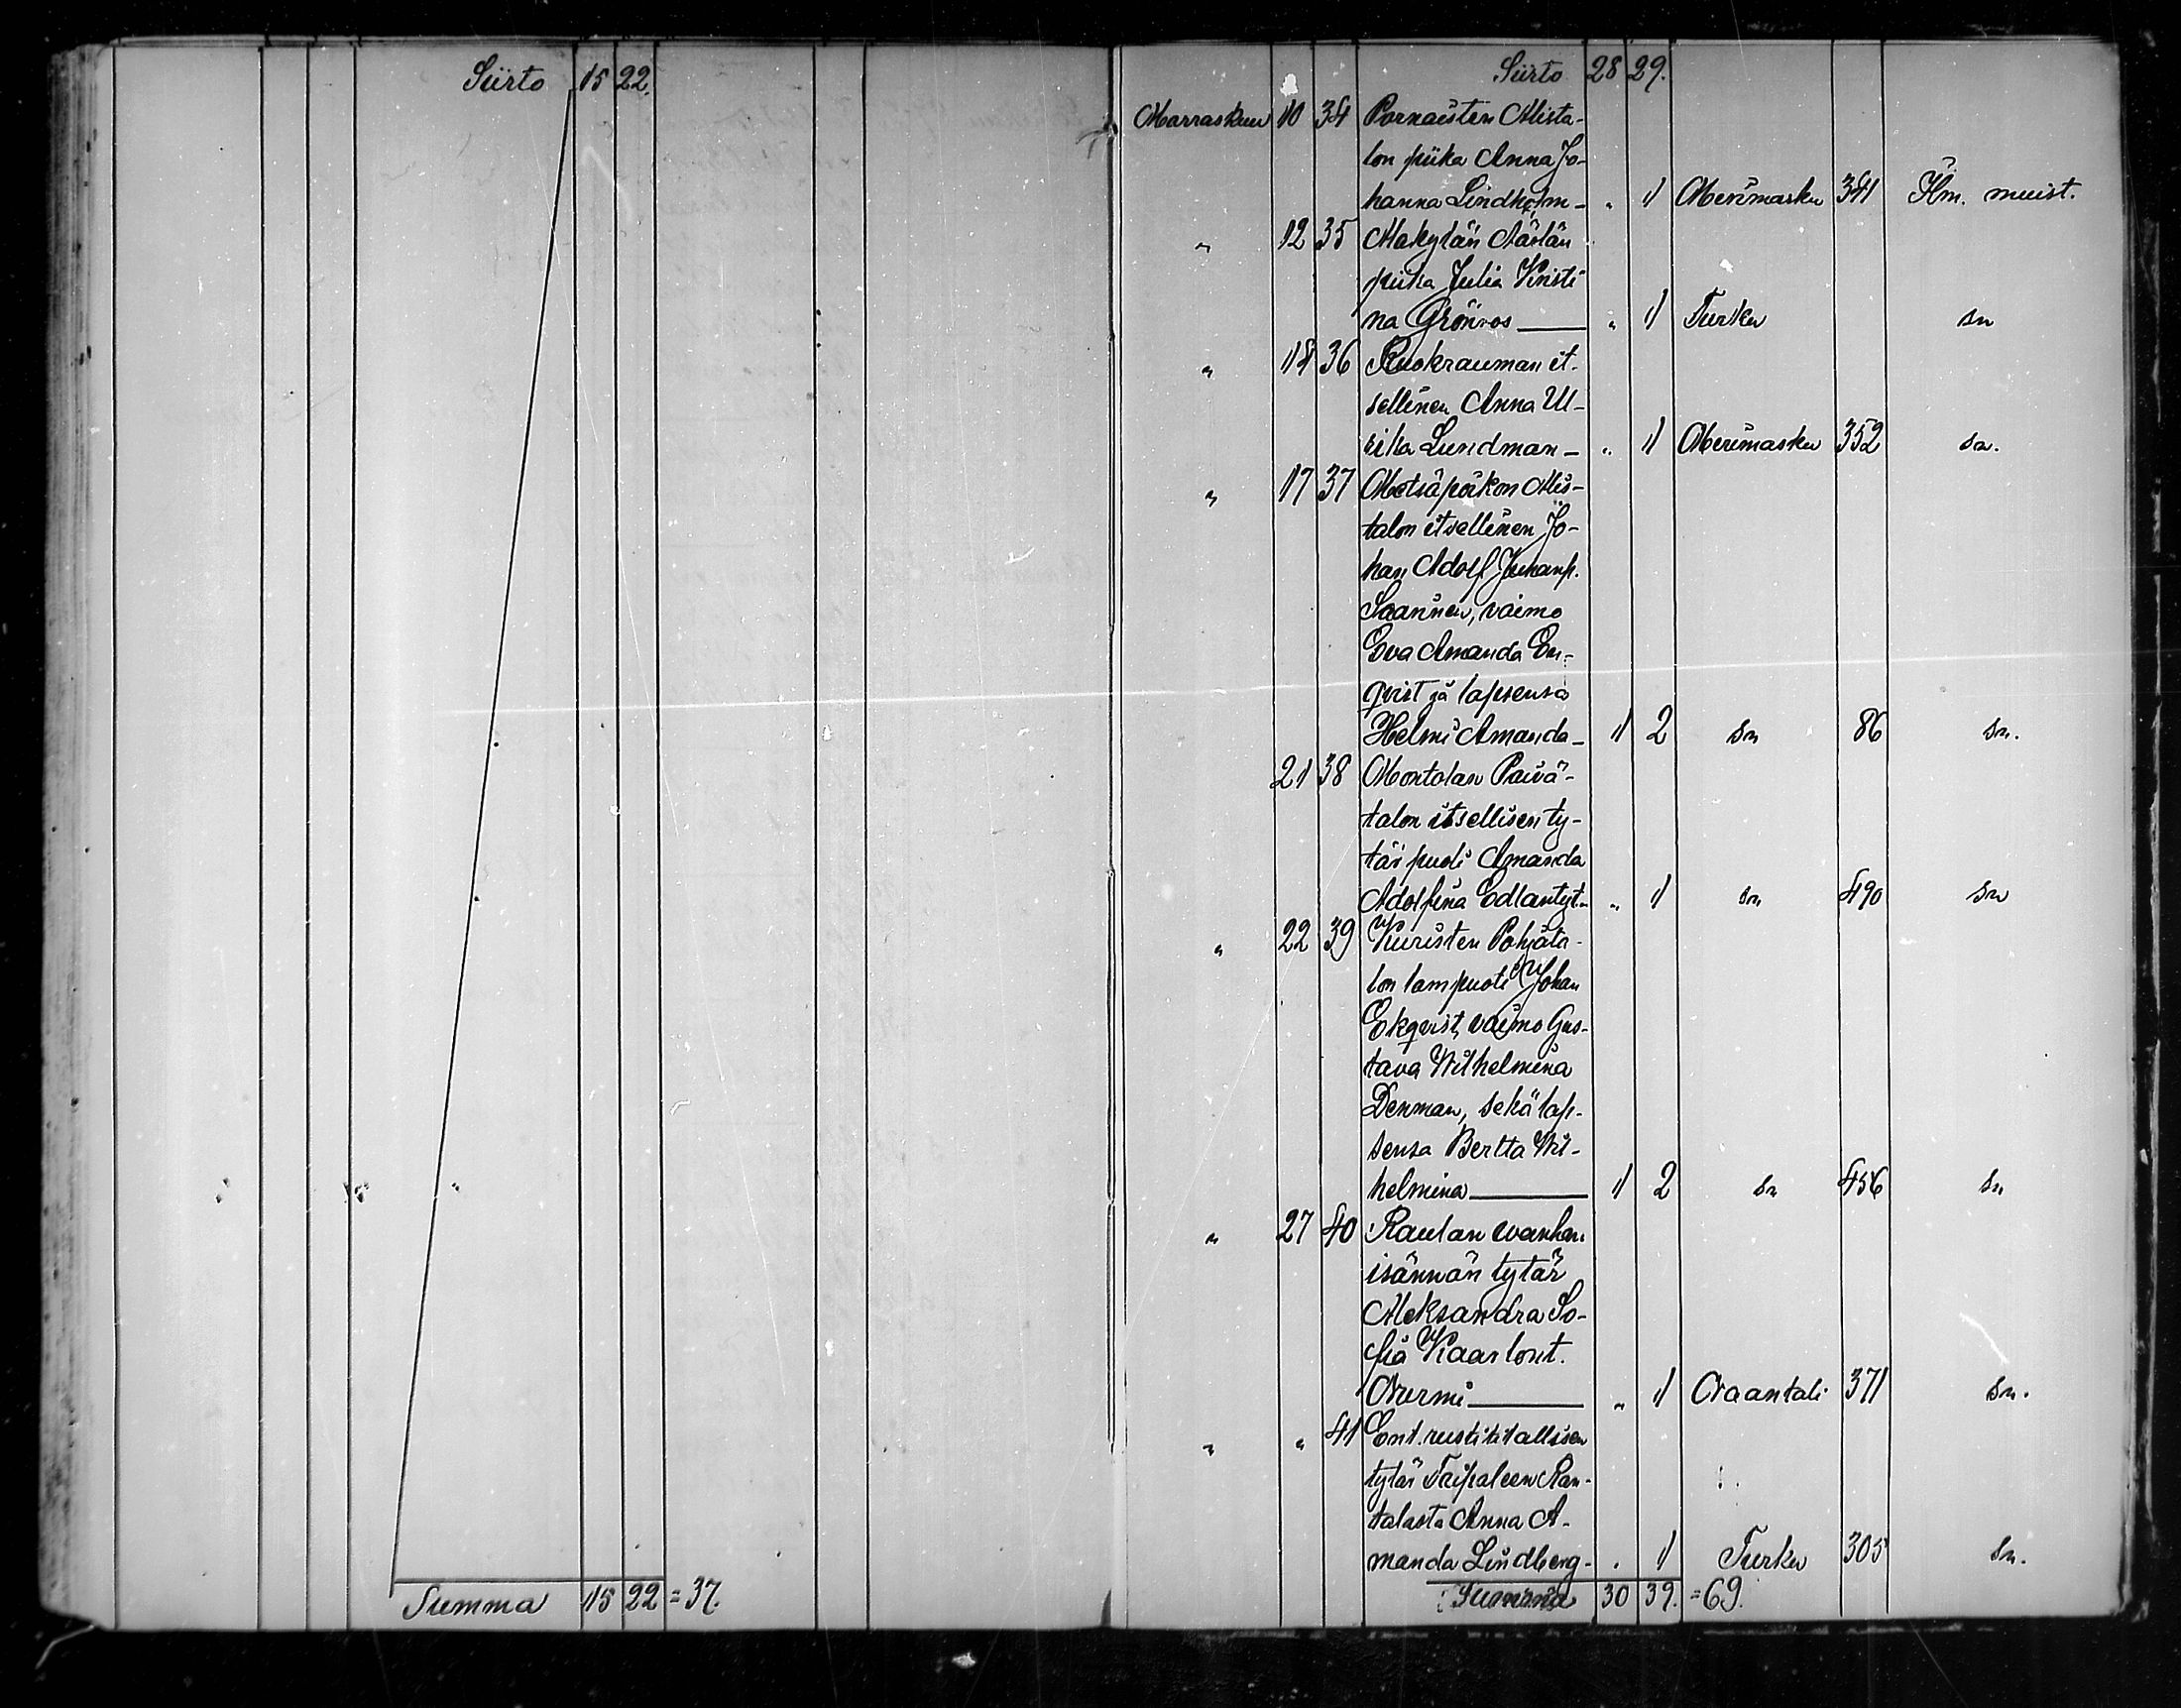 Siirto 15 22.
Summa 15 22 = 37.
Siirto 28 29.
Marraskuu 10 34 Pornaisten Alista-
lon piika Anna Jo-
hanna Lindholm - " 1 Merimasku 341 Hm. muist.
" 12 35 Makylän
piika Julia Kristi
na Grönroos " 1 Turku sn
" 18 36 Ruokrauman it-
sellinen Anna Ul-
rika Lundman - " 1 Merimasku 352 sn.
" 17 37 Metsäpoikon Alis-
talon itsellinen Jo-
han Adolf Juhanp.
Saarinen, vaimo
Eva Amanda En-
qvist ja lapsensa
Helmi Amanda - 1 2 sn 86 sn.
21 38 Montolan Päivä-
talon itsellisen ty-
tär puoli Amanda
Adolfina Edlantyt. " 1 sn 490 sn
" 22 39 Kuristen Pohjata-
lon lampuoti Johan
Ekqvist, vaimo Gus-
tava Wilhelmina
Denman, sekä lap-
sensa Bertta Wil-
helmina 1 2 sn 456 sn
" 27 40 Raulan wanhan
isännän tytär
Aleksandra So-
fia Kaarlont.
Nurmi " 1 Naantali 371 sn.
" " 41 Ent. rustitilallisen
tytär Taipaleen Ran-
talasta Anna A-
manda Lindberg - " 1 Turku 305 sn.
Summa 30 39. = 69.